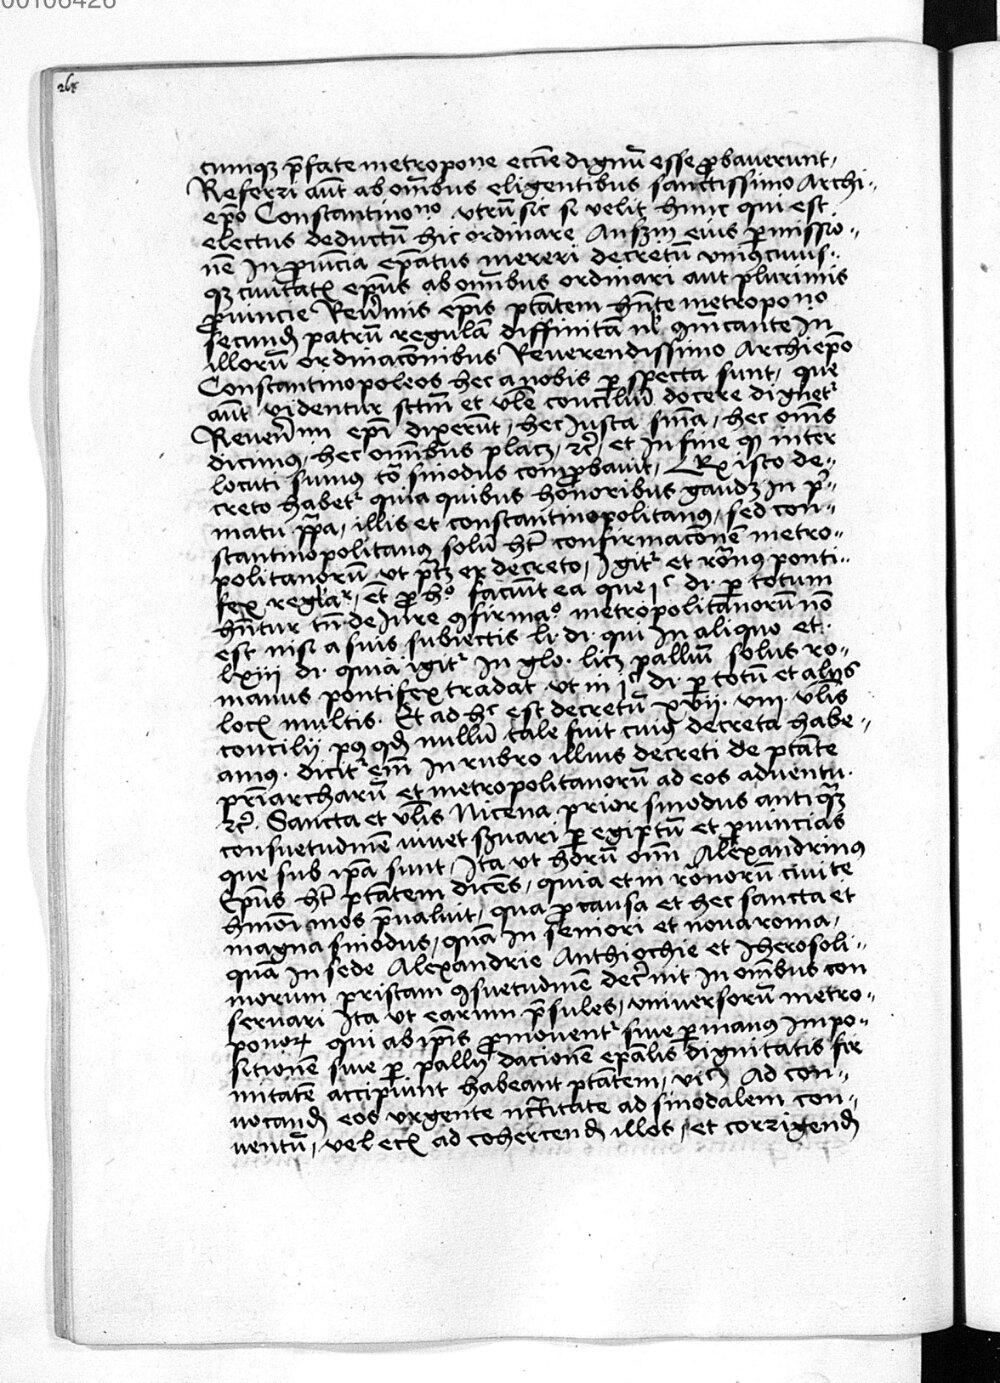 00106426
cumqꝫ p̄fate metropone eccīe dignū esse ꝓbaverunt,
Referri aūt ab oībus eligentibus sanctissimo Archi-
epō Constantinoⁿᵒ utrū sic si velit hunc qui est
electus deductū hic ordinare An sꝫm eius ꝑmissio-
nē In ꝓuīcia epātus mereri decretū uniꝰcuius-
qꝫ ciuitatꝭ epūs ab oībus ordinari aut plurimis
ꝓuincie Reuēmis epīs ptātem hn̄te metropono
secund patrū regulā diffinitā nl͞ cōicante In
illorū ordinacōnibus Reverendissimo Archiepō
Constantinopoleos hec a nobis ꝑspecta sunt, que
aūt videntur sctm̄ et vl̄e conciliū docere dignetʳ
Reuēmi epī dixerūt, hec Iusta sūt, hec om̄s
dicimꝰ, hec om̄ibus placꝫ, ꝛc̄, et In fine qꝫ inter
locuti sumus tō sinodus comprobavit, Ex isto de-
creto habetʳ quia quibus honoribus gaudꝫ In p̄-
matu papa, illis et constantinopolitanꝰ, sed con-
stantinopolitanꝰ solū ht̄ confirmacōnem metro-
politanorū ut ptꝫ ex decreto, Igitʳ et roānus ponti-
fex regl̄arʳ, et ꝓ hº faciūt ea que iᶜ di. ꝑ totum
hn̄tur tn̄ de Iure ꝯfirmaº metropolitanorū nō
est nisi a suis subiectis li. di. qui In aliquo et.
lxiii di. quia igitʳ In glo. licꝫ palliū solus ro-
manus pontifex tradat ut in iᶜ di. ꝑ totū et aliis
locꝭ multis. Et ad hᶜ est decretū xvii. viii. vl̄is
concilij pꝰ qd nullū tale fuit cuiꝰ decreta habe-
amꝰ. dicitʳ em̄ In rubro illius decreti de ptāte
pr̄iarcharū et metropolitanorū ad eos adventu.
ꝛc̄. Sancta et vl̄is Nicena prior sinodus antiquā
consuetudinē iuuet sꝫuari ꝑ egiptū et ꝓuincias
que sub ipā sunt, Ita ut hōrū oīm Alexandrinꝰ
Epūs ht̄ ptātem dicēs, quia et in roānorū ciuitē
hmōi mos p̄valuit, qua ꝓ causa et hec sancta et
magna sinodus, quā In seniori et nova roma,
quā In sede Alexandrie Anthiochie et Iherosoli-
morum priscam ꝯsuetudinē dec̄nit In om̄ibus con
servari Ita ut earum p̄sules, universorū metro-
ponoꝝ qui ab ipīs ꝓmoventʳ sive ꝑ manꝰ Impo-
sitionē sive ꝑ pallij dacionē epālis dignitatis fir
mitatē accipiunt habeant ptātem, vicꝫ Ad con-
uocand eos urgente nc̄c̄itate ad sinodalem con-
ventū, vel ecꝭ ad cohercend illos, et corrigend